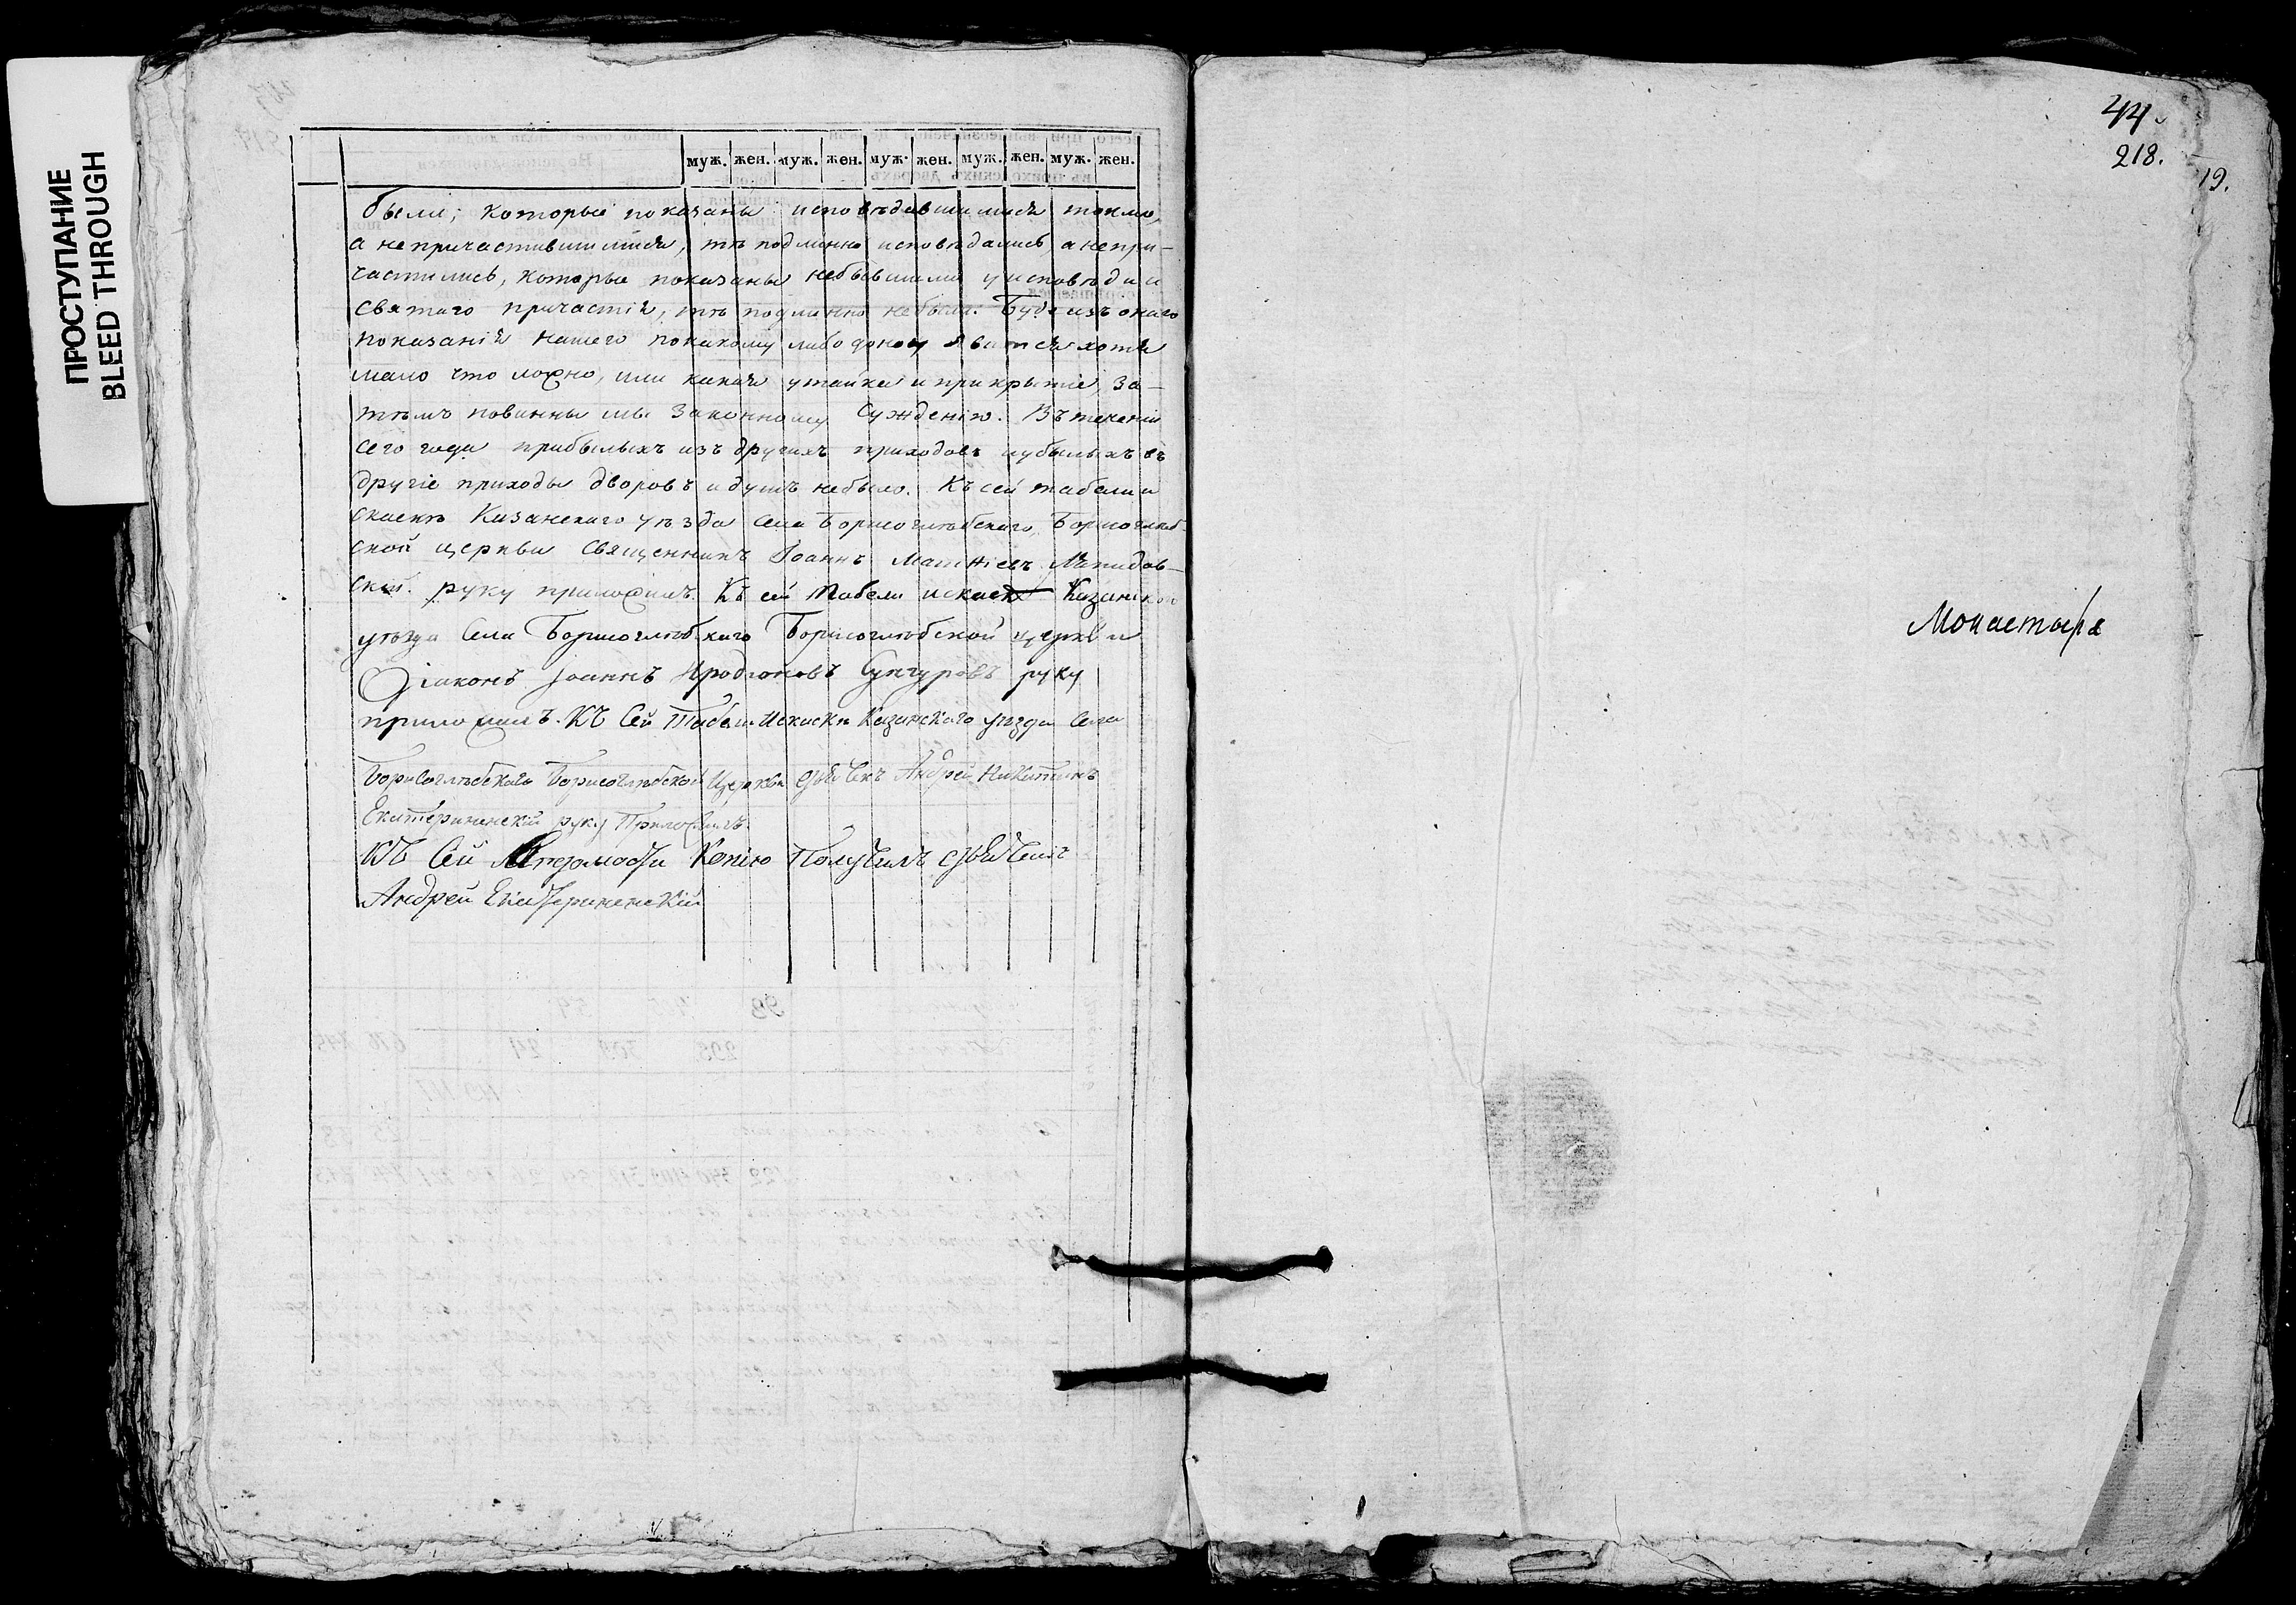 ПРОСТУПАНИЕ
BLEED THROUGH
муж. жен. муж. жен. муж. жен. муж. жен. муж. жен.
были; которые показаны исповѣдавшимися токмо,
а непричастившимися, тѣ подлинно исповѣдались, а непри-
частились, которые показаны небывшими у исповѣди и
святаго причастія, тѣ подлинно небыли. Буде изъ онаго
показанія нашего покакому либо доносу явится хотя
мало что ложно, или какая утайка и прикрытіе, за-
тѣмъ повинны мы законному сужденію. Въ теченіи
сего года прибылыхъ изъ другихъ приходовъ и убылыхъ въ
другіе приходы дворовъ и душъ небыло. Къ сей табели и
скаскѣ Казанскаго уѣзда села Борисоглѣбскаго, Борисоглѣб-
ской церкви священникъ Іоаннъ
руку приложилъ. Къ сей Табели искаскѣ Казанского
уѣзда Села Борисоглѣбскаго Борисоглѣбской церкви
Діаконъ Іоаннъ Иродіоновъ Сунгуровъ руку
приложилъ. Къ Сей Табели Искаскѣ Казанскаго уѣзда Села
Борисоглѣбскаго Борисоглѣбской Церкви Андрей Никитинъ
Екатерининскій руку Приложилъ.
Къ Сей Копію Получилъ
Андрей Екатерининскій
44.
218.
19.
Монастыря